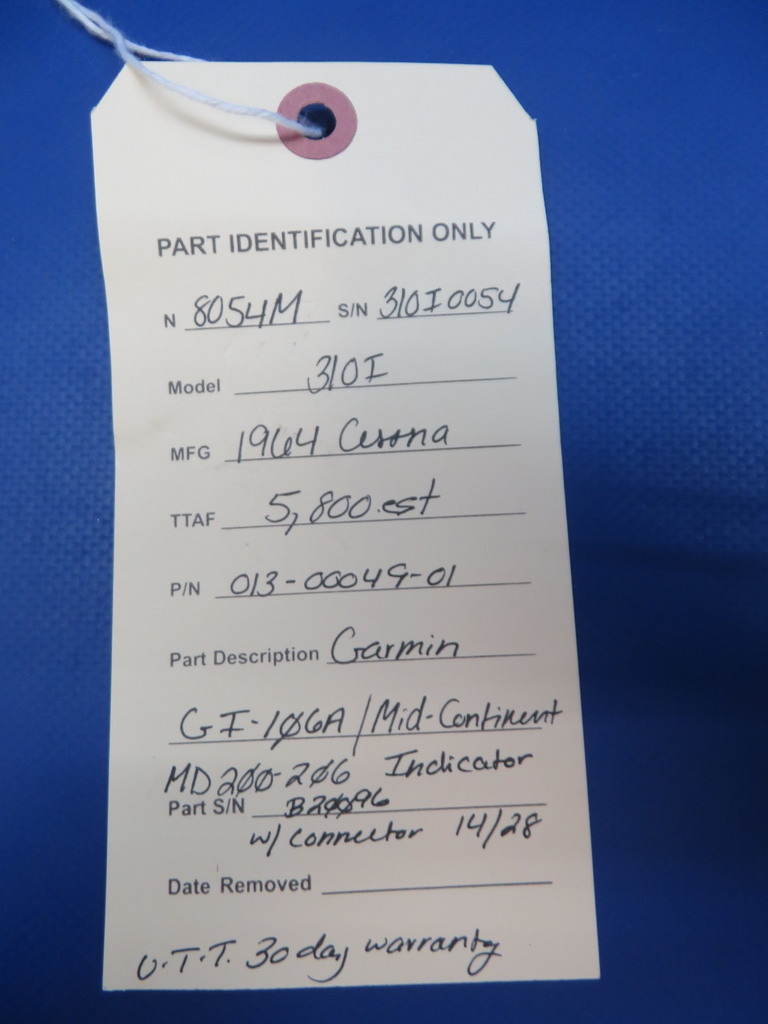 PART IDENTIFICATION ONLY
N 8054M S/N 310I0054
Model 310I
MFG 1964 Cessna
TTAF 5,800 est
P/N 013-00049-01
Part Description Garmin
GI-106A / Mid-Continent
MD200-206 Indicator
Part S/N B20096
w/ connector 14/28
Date Removed
U.T.T. 30 day warranty